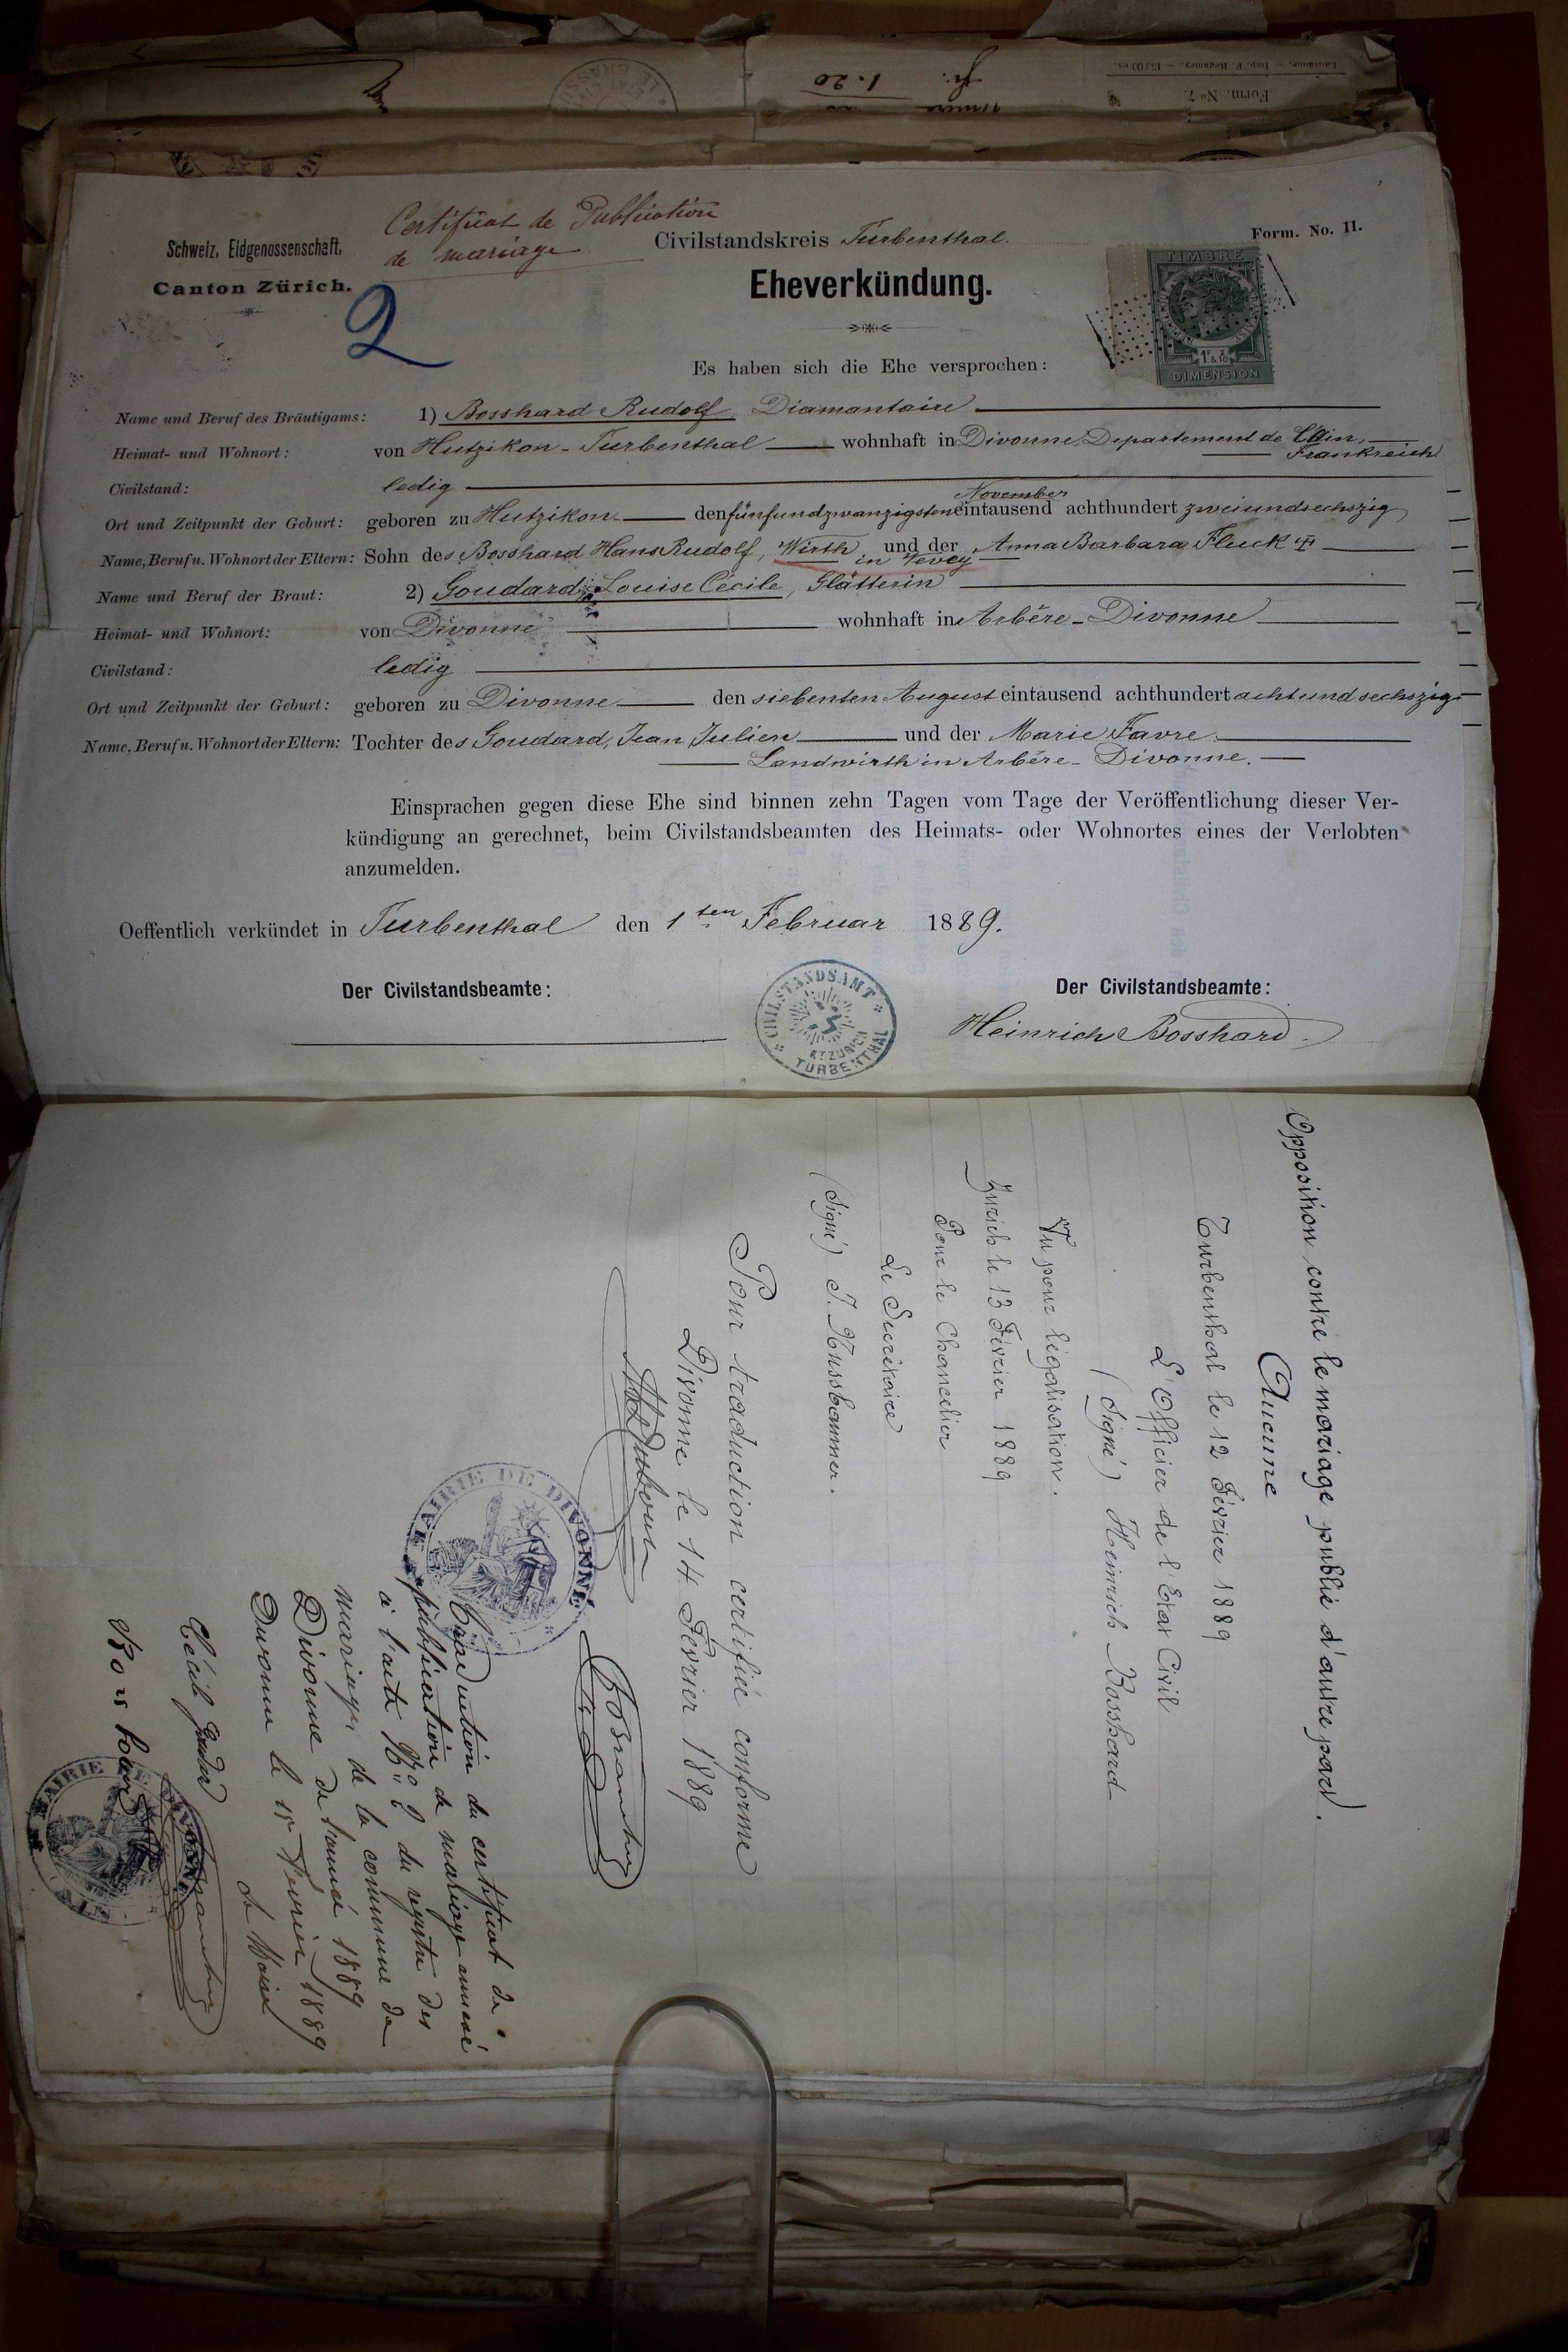 Form. No 7.
Lausanne. — Imp. F. Regamey. — 15,000 ex.
fr. 1.20
Certificat de Publication
de mariage
Schweiz. Eidgenossenschaft.
Canton Zürich.
2
Civilstandskreis Turbenthal.
Form. No. 11.
Eheverkündung.
TIMBRE
DIMENSION
Es haben sich die Ehe versprochen:
Name und Beruf des Bräutigams: 1) Bosshard Rudolf Diamantaire
Heimat- und Wohnort: von Hutzikon - Turbenthal wohnhaft in Divonne, Departement de l'Ain,
Frankreich
Civilstand: ledig
November
Ort und Zeitpunkt der Geburt: geboren zu Hutzikon den fünfundzwanzigsten eintausend achthundert zweiundsechszig
Name, Beruf u. Wohnort der Eltern: Sohn des Bosshard Hans Rudolf, Wirth und der Anna Barbara Fluck
in Vevey
Name und Beruf der Braut: 2) Goudard, Louise Cécile, Glätterin
Heimat- und Wohnort: von Divonne wohnhaft in Arbère - Divonne
Civilstand: ledig
Ort und Zeitpunkt der Geburt: geboren zu Divonne den siebenten August eintausend achthundert achtundsechszig
Name, Beruf u. Wohnort der Eltern: Tochter des Goudard, Jean Julien und der Marie Favre
Landwirth in Arbère - Divonne.
Einsprachen gegen diese Ehe sind binnen zehn Tagen vom Tage der Veröffentlichung dieser Ver-
kündigung an gerechnet, beim Civilstandsbeamten des Heimats- oder Wohnortes eines der Verlobten
anzumelden.
Oeffentlich verkündet in Turbenthal den 1ten Februar 1889.
Der Civilstandsbeamte:
CIVILSTANDSAMT
KT ZÜRICH
TURBENTHAL
Der Civilstandsbeamte:
Heinrich Bosshard
Opposition contre le mariage publié d'autre part.
Aucune
Turbenthal le 12 Février 1889
L'Officier de l'Etat Civil
(Signé) Heinrich Bosshard
Vu pour légalisation.
Zurich le 13 Février 1889
Pour le Chancelier
Le Secrétaire
(Signé) J. Nussbaumer.
Pour traduction certifiée conforme
Divonne le 14 Février 1889
MAIRIE DE DIVONNE
Traduction du certificat de
publication de mariage annexé
à l'acte No 2 du registre des
mariages de la commune de
Divonne de l'année 1889
Divonne le 15 Février 1889
Le Maire
Cécile Goudard
Bosshard
MAIRIE DE DIVONNE
AIN